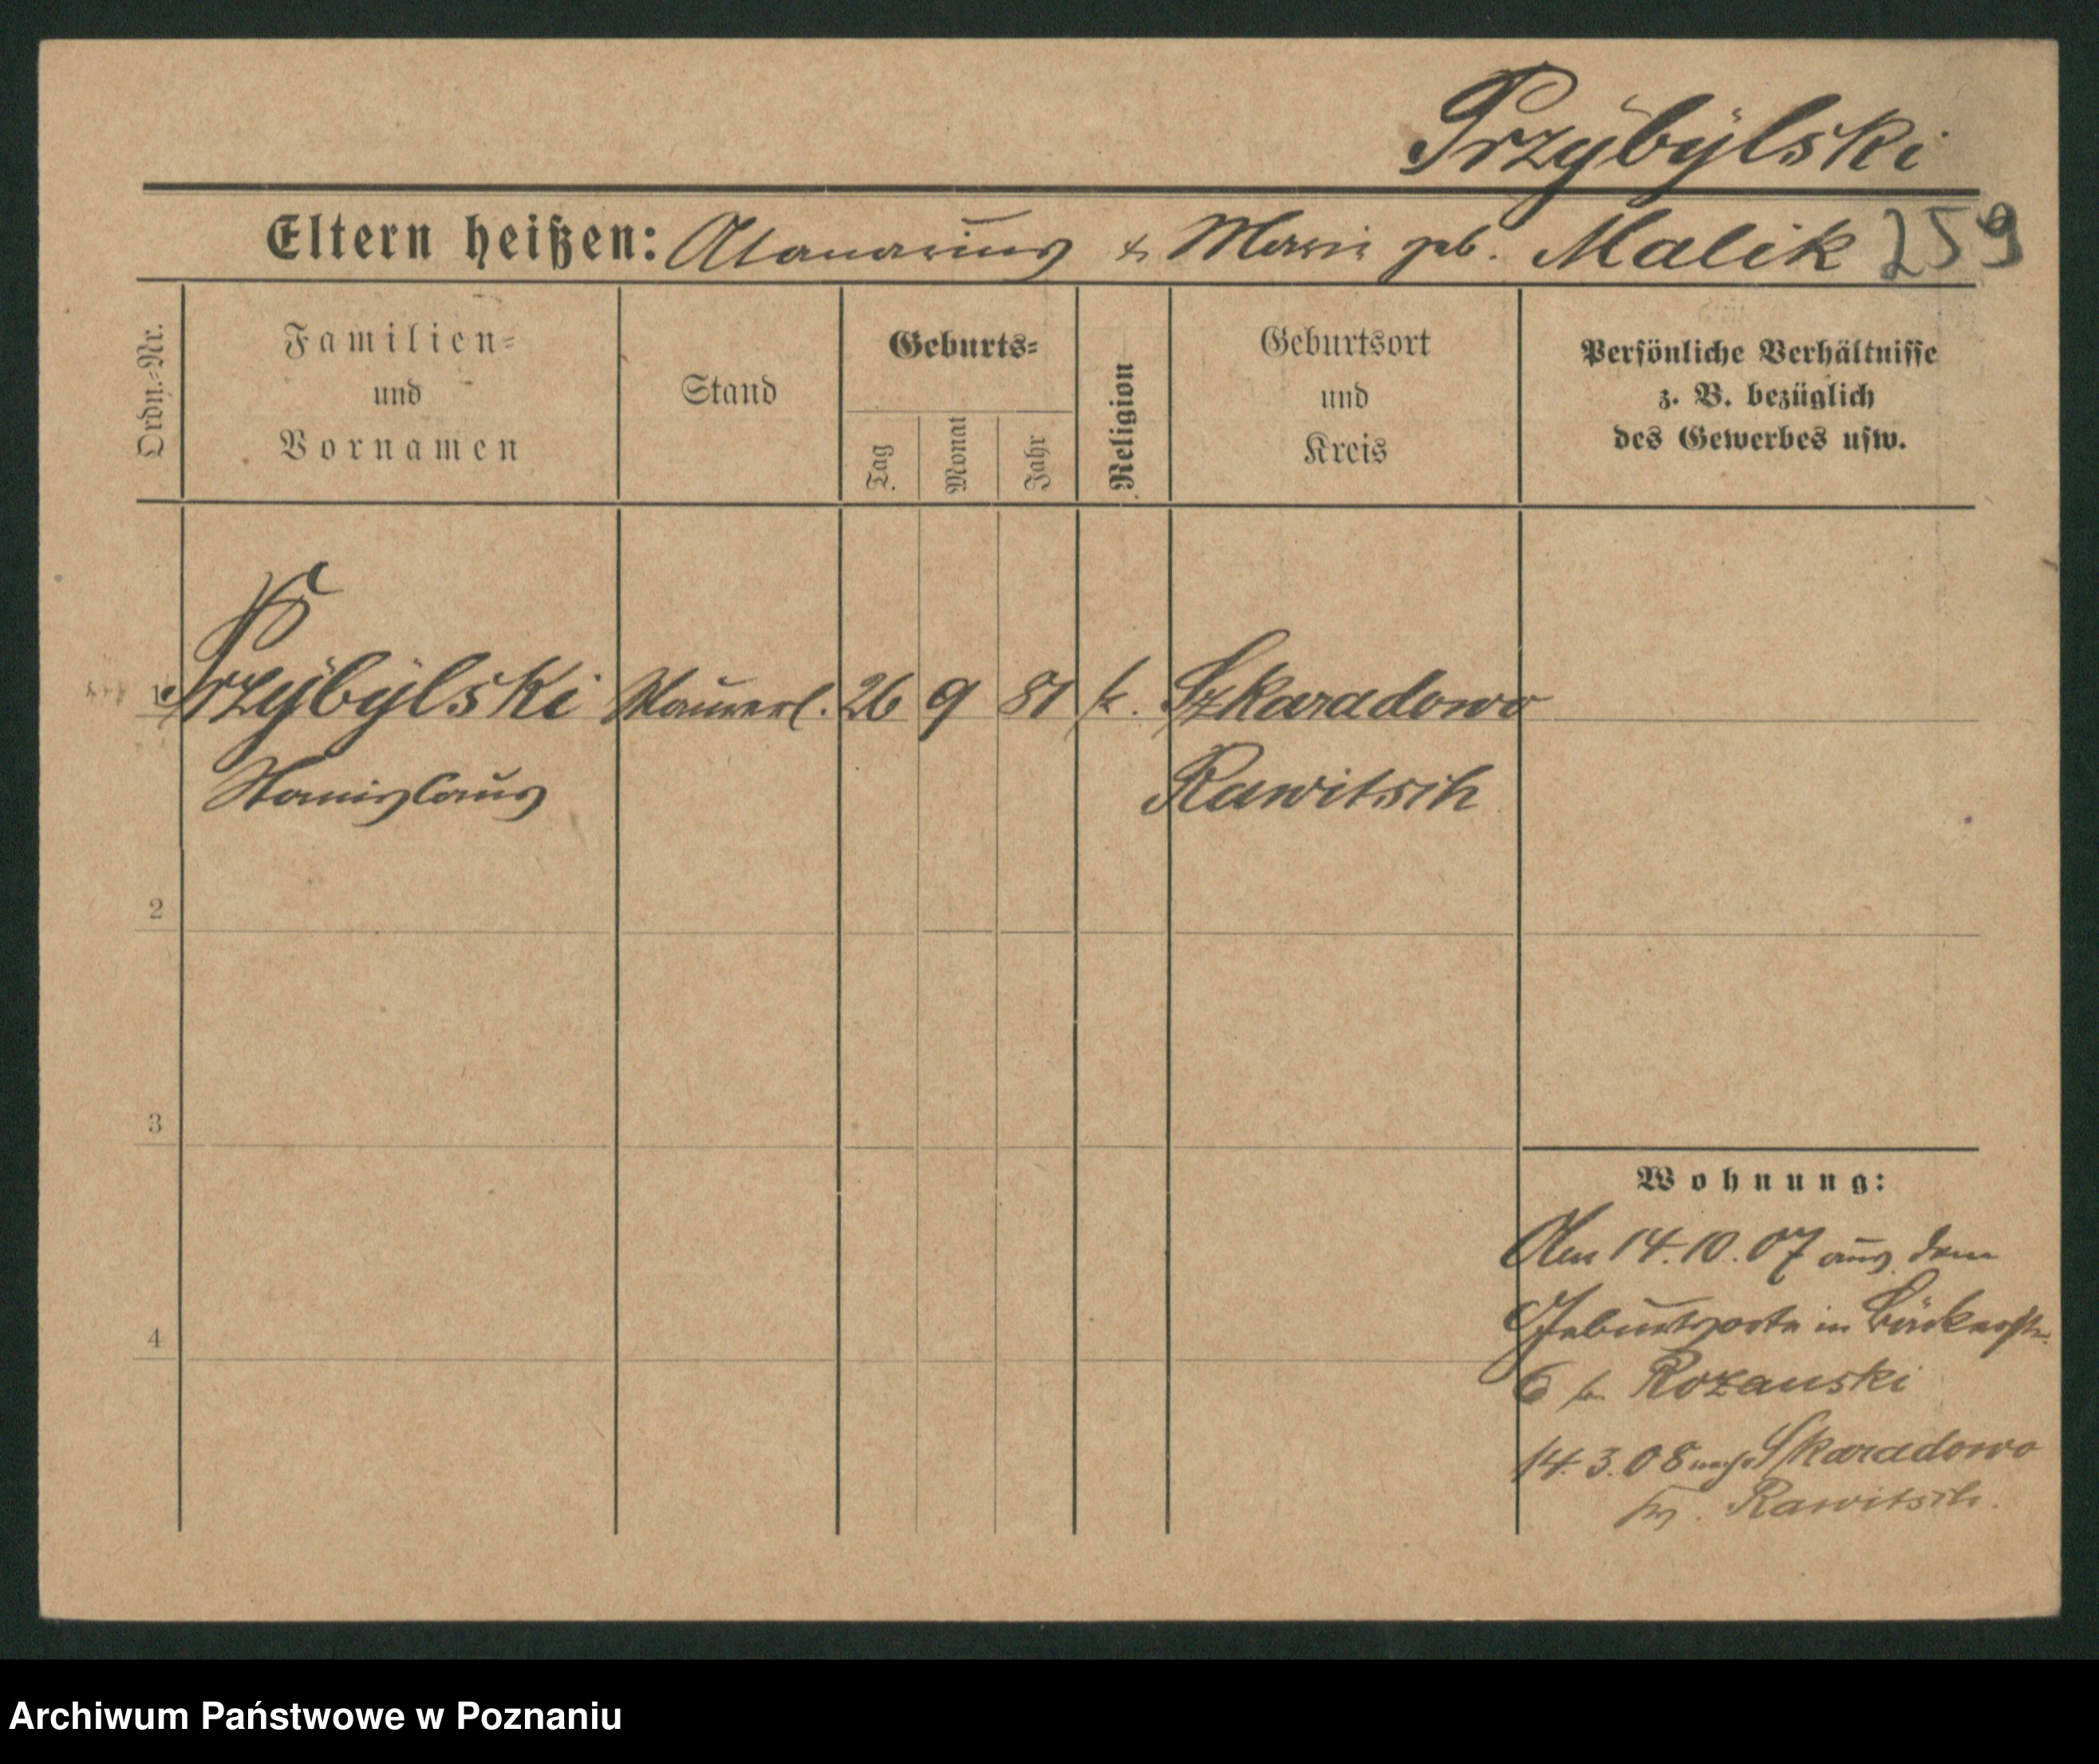 Przÿbÿlski
Eltern heißen: Atanasius & Marie geb. Malik 259
Ordn.-Nr.
Familien=
und
Vornamen
Stand
Geburts=
Tag
Monat
Jahr
Religion
Geburtsort
und
Kreis
Persönliche Verhältnisse
z. B. bezüglich
des Gewerbes usw.
1 Przÿbÿlski Maurerl. 26 9 81 k. Szkaradowo
Stanislaus Rawitsch
2
3
4
Wohnung:
Am 14.10.07 aus dem
Geburtsorte in Bäckerstr.
6 b. Rozanski
14.3.08 nach Skaradowo
Rawitsch.
Archiwum Państwowe w Poznaniu